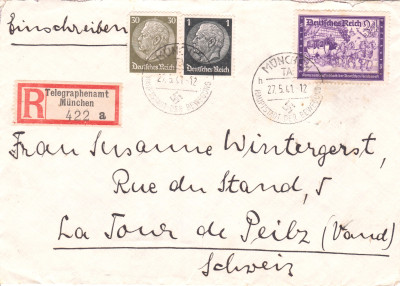 Einschreiben
30 30
Deutsches Reich
1 1
Deutsches Reich
Deutsches Reich
24
MÜNCHEN
27.5.41-12
MÜNCHEN
TA
27.5.41-12
HAUPTSTADT DER BEWEGUNG
R
Telegraphenamt
München
422 a
Frau Susanne Wintergerst,
Rue du Stand, 5
La Tour de Peilz (Vaud)
Schweiz